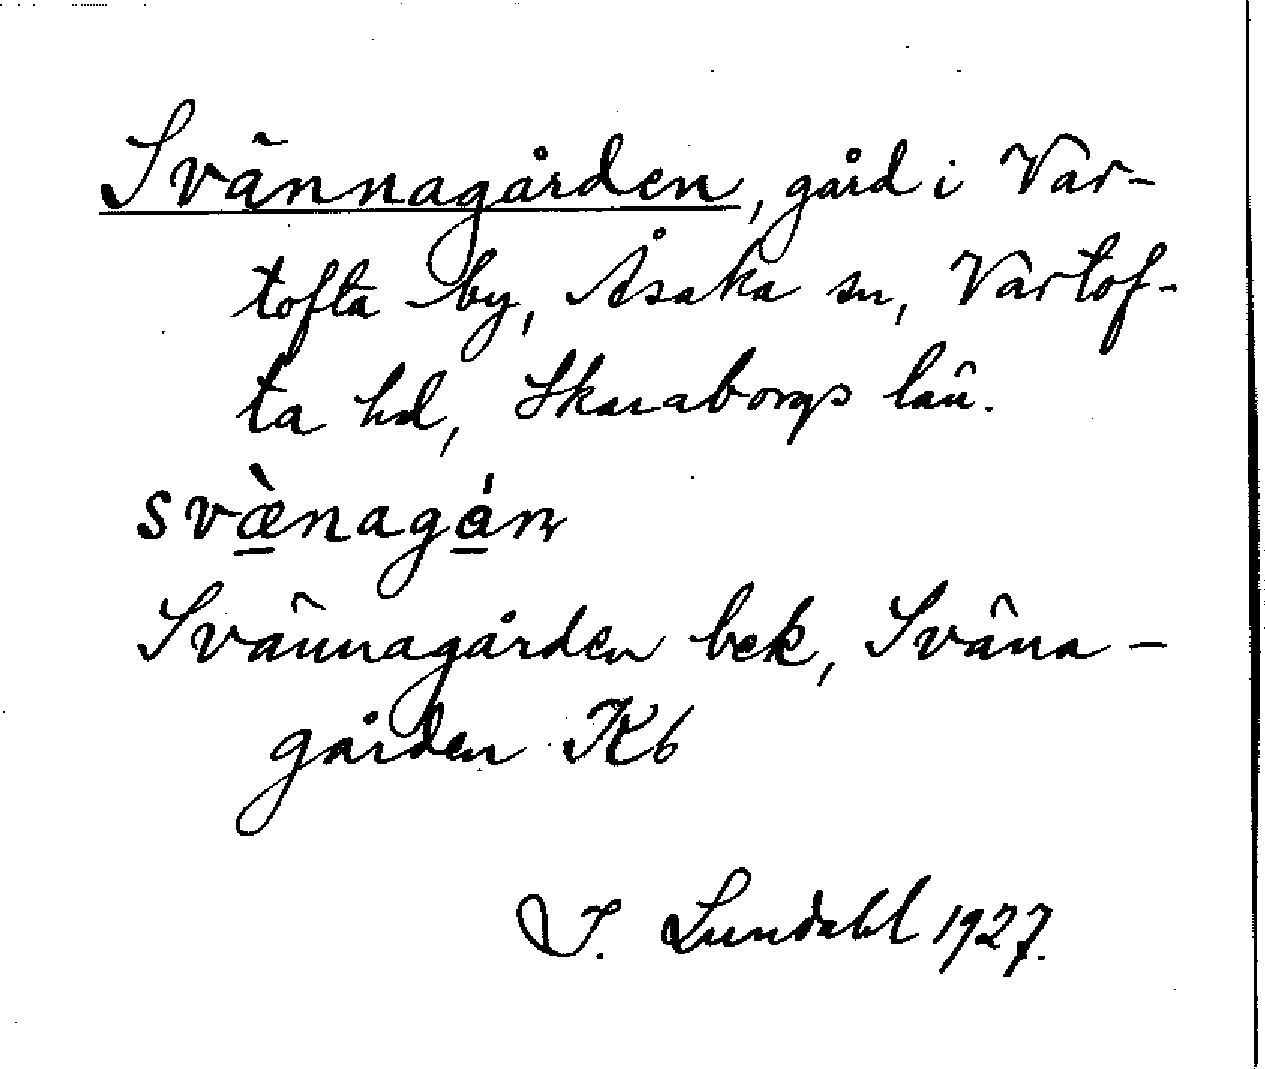 Svännagården, gård i Var-
tofta by, Åsaka sn, Vartof-
ta hd, Skaraborgs län.
svæ̀nagán
Svännagården bek, Sväna-
gården Kb
I. Lundahl 1927.